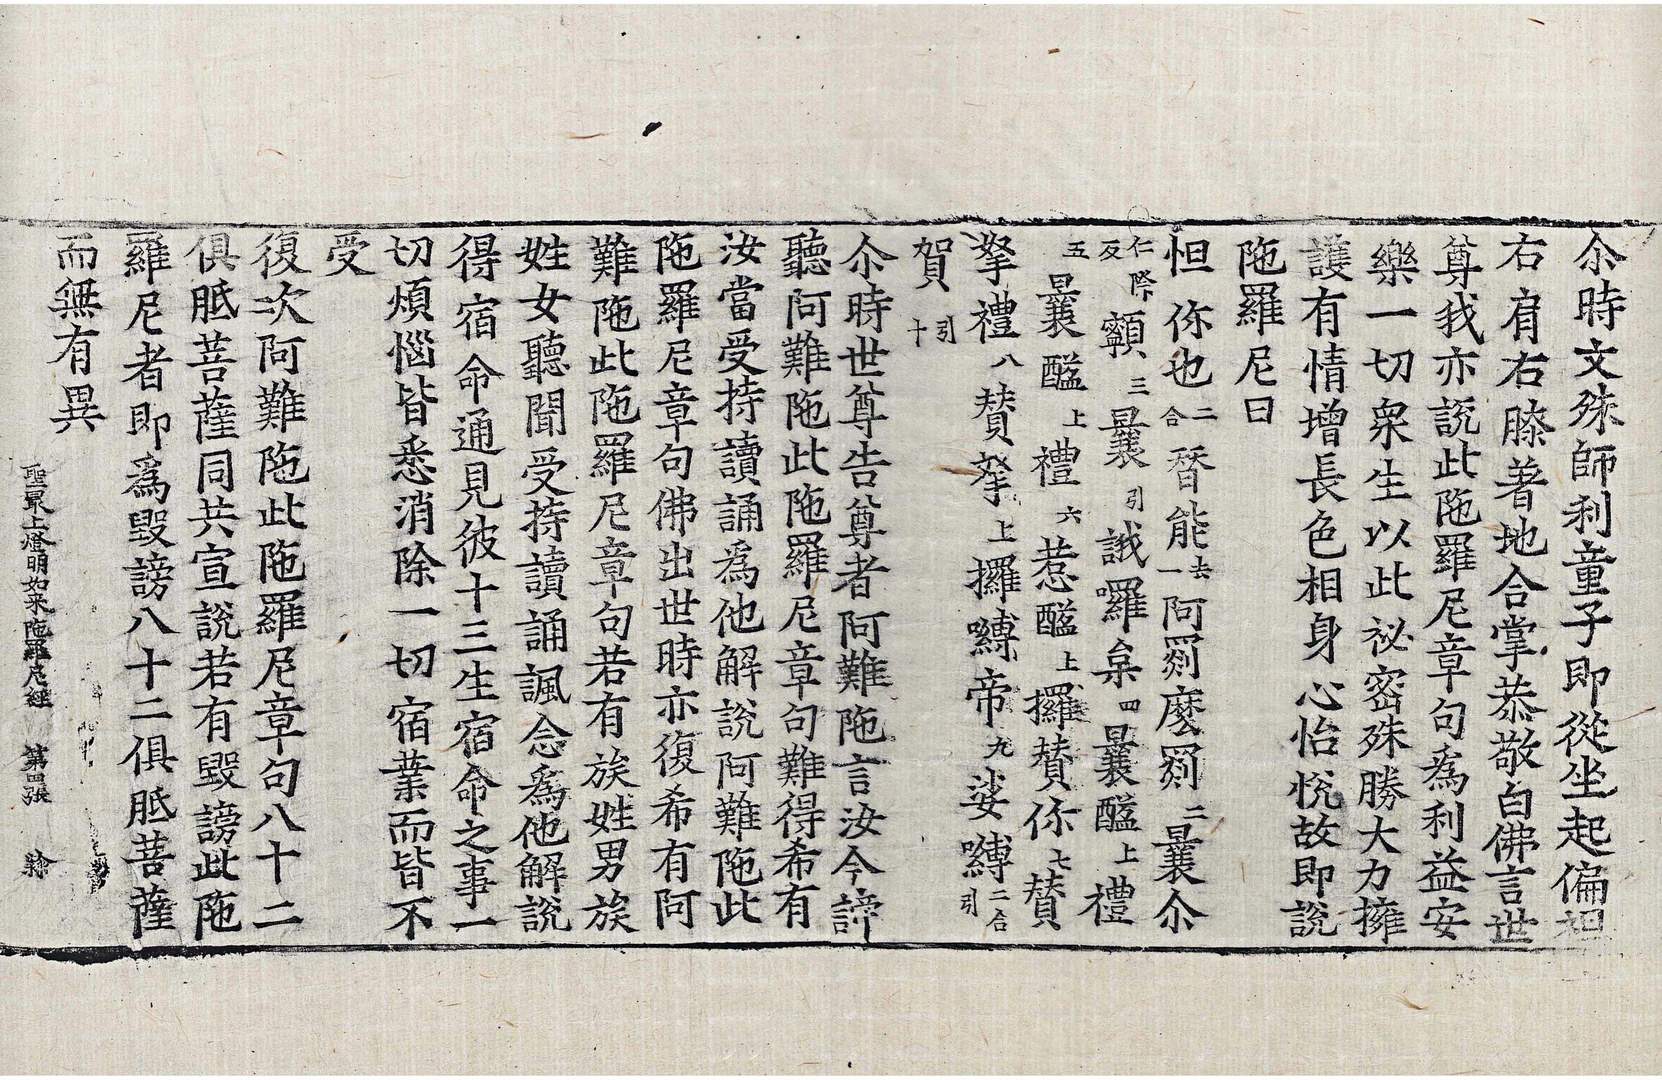 尒時文殊師利童子即從坐起偏袒
右肩右膝著地合掌恭敬白佛言世
尊我亦說此陁羅尼章句爲利益安
樂一切衆生以此祕密殊勝大力擁
護有情增長色相身心怡悅故即說
陁羅尼曰
怛你也二合替能去一阿罽麽罽二曩尒
仁際反顙三曩引誐囉枲四曩醯上禮
五曩醯上禮六惹醯上攞賛你七賛
拏禮八賛拏上攞嚩帝九娑嚩二合引
賀引十
尒時世尊告尊者阿難陁言汝今諦
聽阿難陁此陁羅尼章句難得希有
汝當受持讀誦爲他解說阿難陁此
陁羅尼章句佛出世時亦復希有阿
難陁此陁羅尼章句若有族姓男族
姓女聽聞受持讀誦諷念爲他解說
得宿命通見彼十三生宿命之事一
切煩惱皆悉消除一切宿業而皆不
受
復次阿難陁此陁羅尼章句八十二
俱胝菩薩同共宣說若有毀謗此陁
羅尼者即爲毀謗八十二俱胝菩薩
而無有異
聖最上燈明如来陁羅尼經 第四張